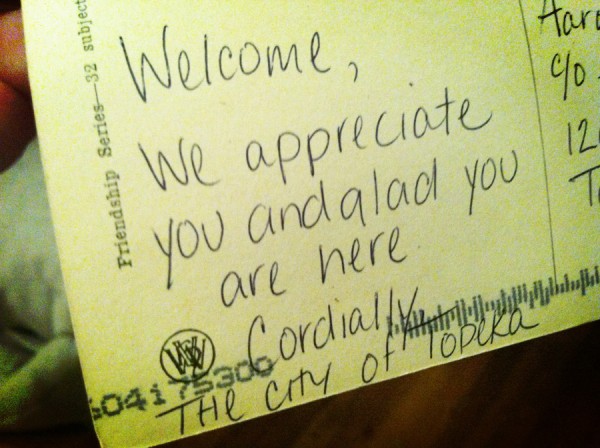 Friendship Series—32 subject
Welcome,
We appreciate
you and glad you
are here
Cordially,
THE CITY OF TOPEKA
W
04175300
Aar
c/o
12
T